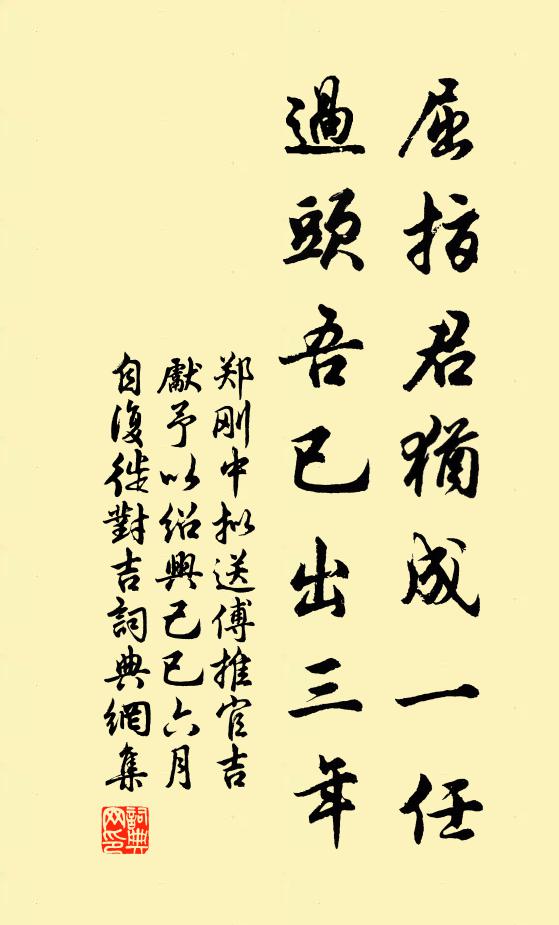 屈指君猶成一任
過頭吾已出三年
郑刚中拟送傅推官吉
獻予以绍興己巳六月
自復徙對吉詞典網集
詞典网印